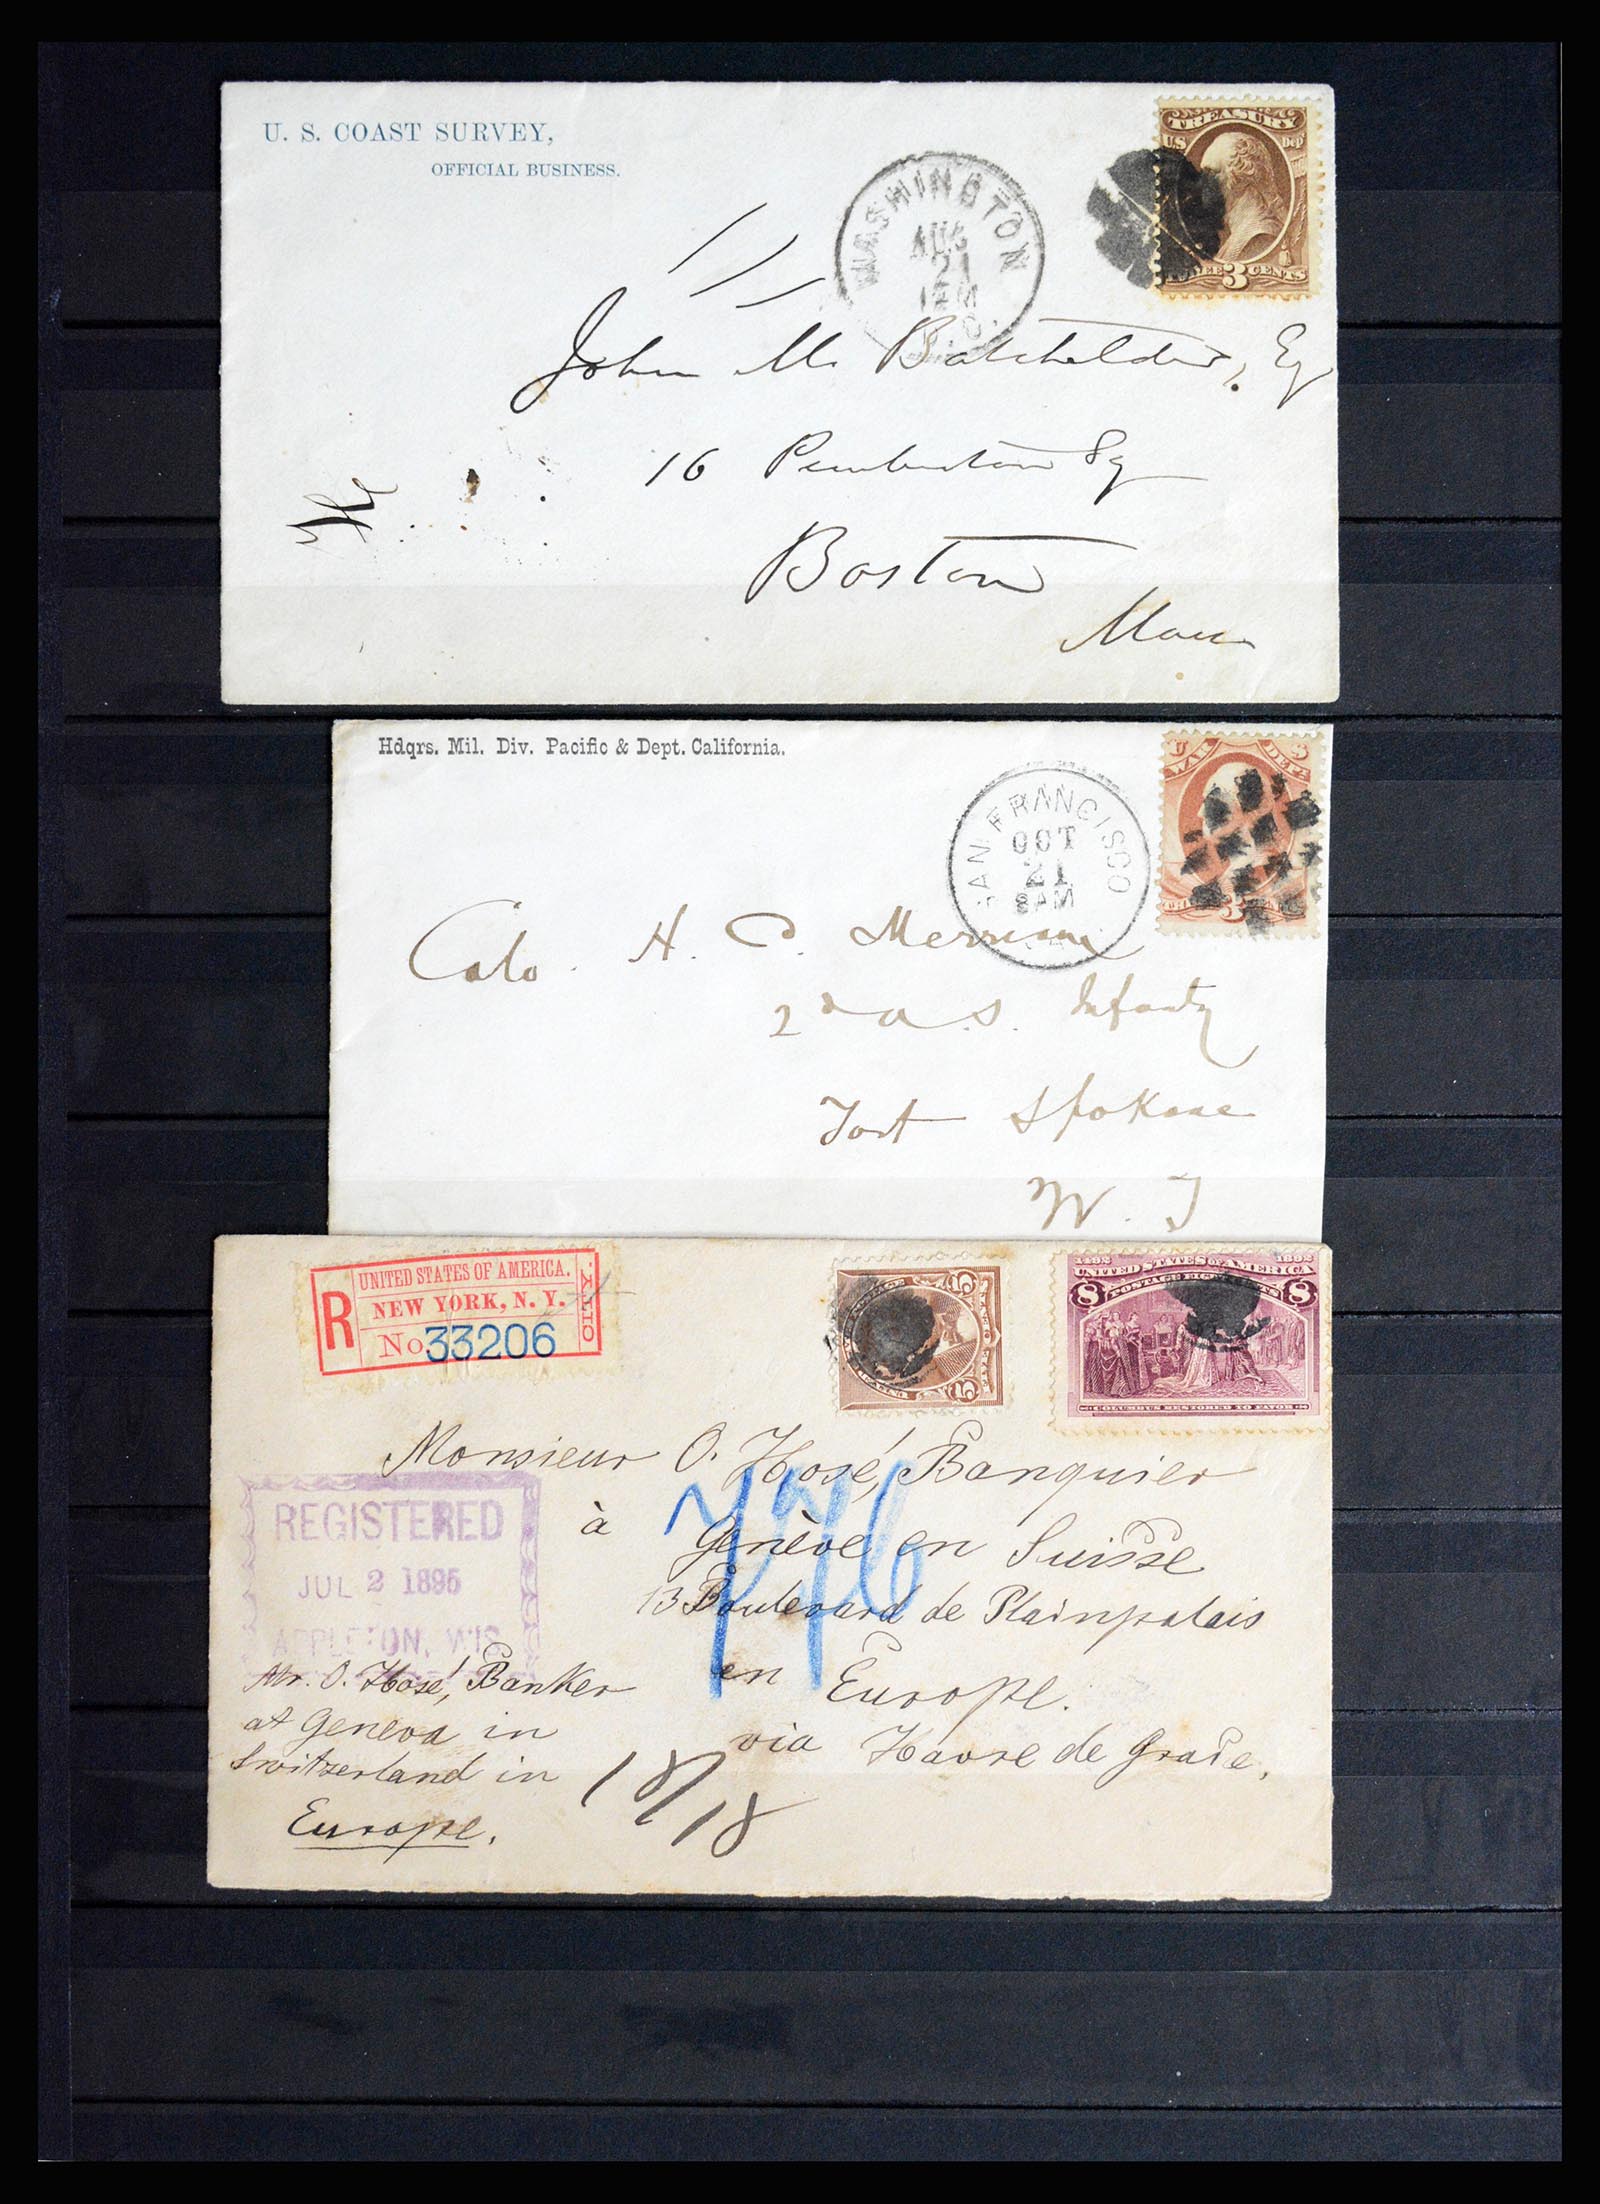 U. S. COAST SURVEY,
OFFICIAL BUSINESS.
WASHINGTON
AUG
21
1 PM
D.C.
TREASURY
U.S. Dep
THREE 3 CENTS
John M. Batchelder, Esq
16 Pemberton Sq
Boston
Mass
Hdqrs. Mil. Div. Pacific & Dept. California.
SAN FRANCISCO
OCT
21
8AM
U S
WAR DEPT.
3
Colo. H. C. Merriam
2d U.S. Infanty
Fort Spokane
W. T
R
UNITED STATES OF AMERICA.
NEW YORK, N. Y.
No 33206
N.Y. CITY
POSTAGE
5 5
1492 1892
UNITED STATES OF AMERICA
POSTAGE EIGHT CENTS
8 8
COLUMBUS RESTORED TO FAVOR
Monsieur O. Hosé, Banquier
à Genève en Suisse
13 Boulevard de Plainpalais
en Europe.
via Havre de Grace,
REGISTERED
JUL 2 1895
APPLETON, WIS.
Mr. O. Hosé, Banker
at Geneva in
Switzerland in
Europe.
18/18